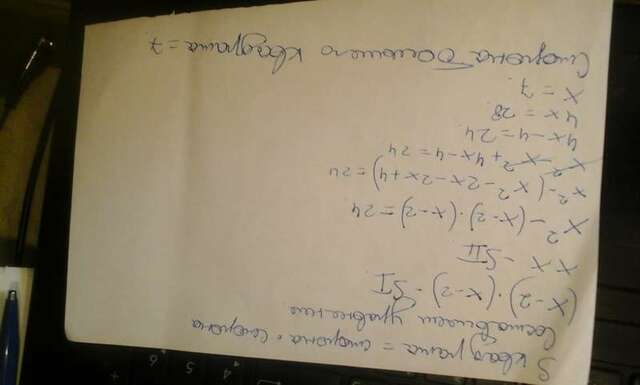 S квадрата = сторона · сторона
Составляем уравнение
(x-2) · (x-2) - SI
x x - SII
x² - (x-2) · (x-2) = 24
x² - (x² - 2x - 2x + 4) = 24
x² - x² + 4x - 4 = 24
4x - 4 = 24
4x = 28
x = 7
Сторона большего квадрата = 7
4
5
6
+